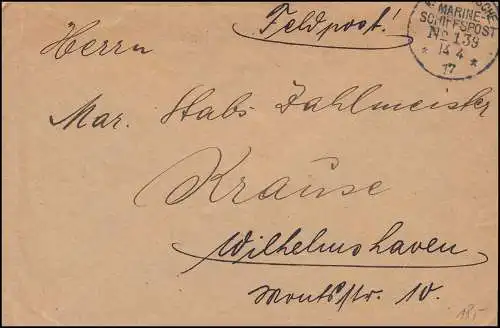 Feldpost!
MARINE-
SCHIFFSPOST
No 139
* 14 4 *
17
Herrn
Mar. Stabs-Zahlmeister
Krause
Wilhelmshaven
str. 10.